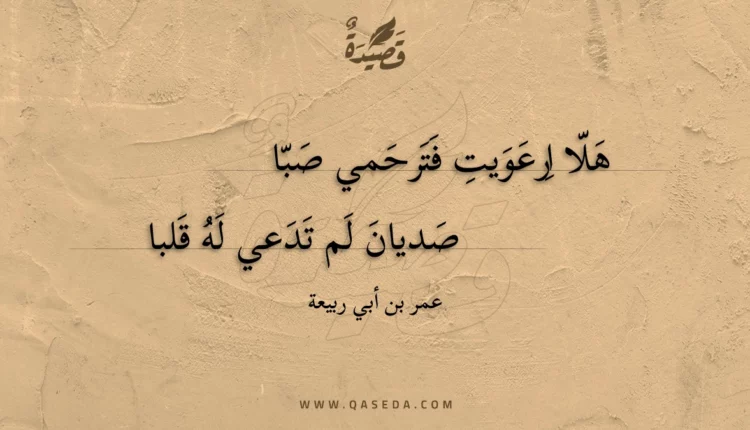 قَصِيْدَةٌ
هَلّا اِرعَوَيتِ فَتَرحَمي صَبّا
صَديانَ لَم تَدَعي لَهُ قَلبا
عمر بن أبي ربيعة
WWW.QASEDA.COM